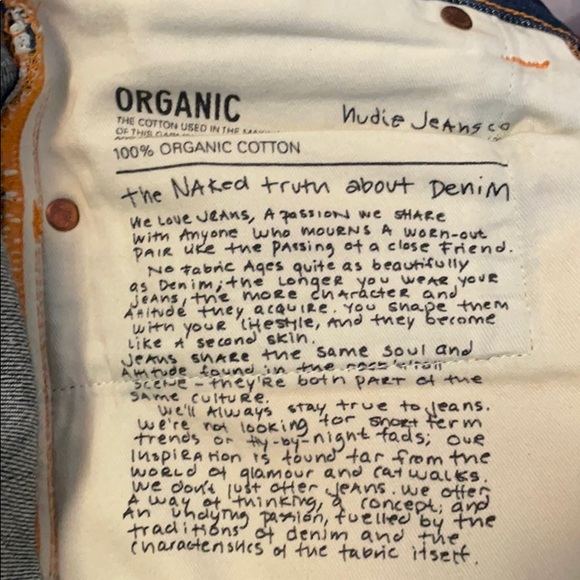 ORGANIC
THE COTTON USED IN THE
OF THIS
100% ORGANIC COTTON
Nudie Jeans co
the NAKed truth about Denim
We Love JEANS, A passion we SHARE
with Anyone who mourns A worn-out
PAIR like the passing of a close Friend.
No Fabric Ages quite as beautifully
as Denim; the Longer you wear your
Jeans, the more character and
Attitude they acquire. You shape them
with your lifestyle, and they become
like a second skin.
Jeans share the same soul and
Attitude found in the rock'n'roll
scene - they're both part of the
same culture.
We'll Always stay true to jeans.
We're not looking for short term
trends or fly-by-night fads; our
inspiration is found far from the
world of glamour and catwalks.
We don't just offer jeans. We offer
A way of thinking, a concept, and
An undying passion, fuelled by the
traditions of denim and the
characteristics of the fabric itself.